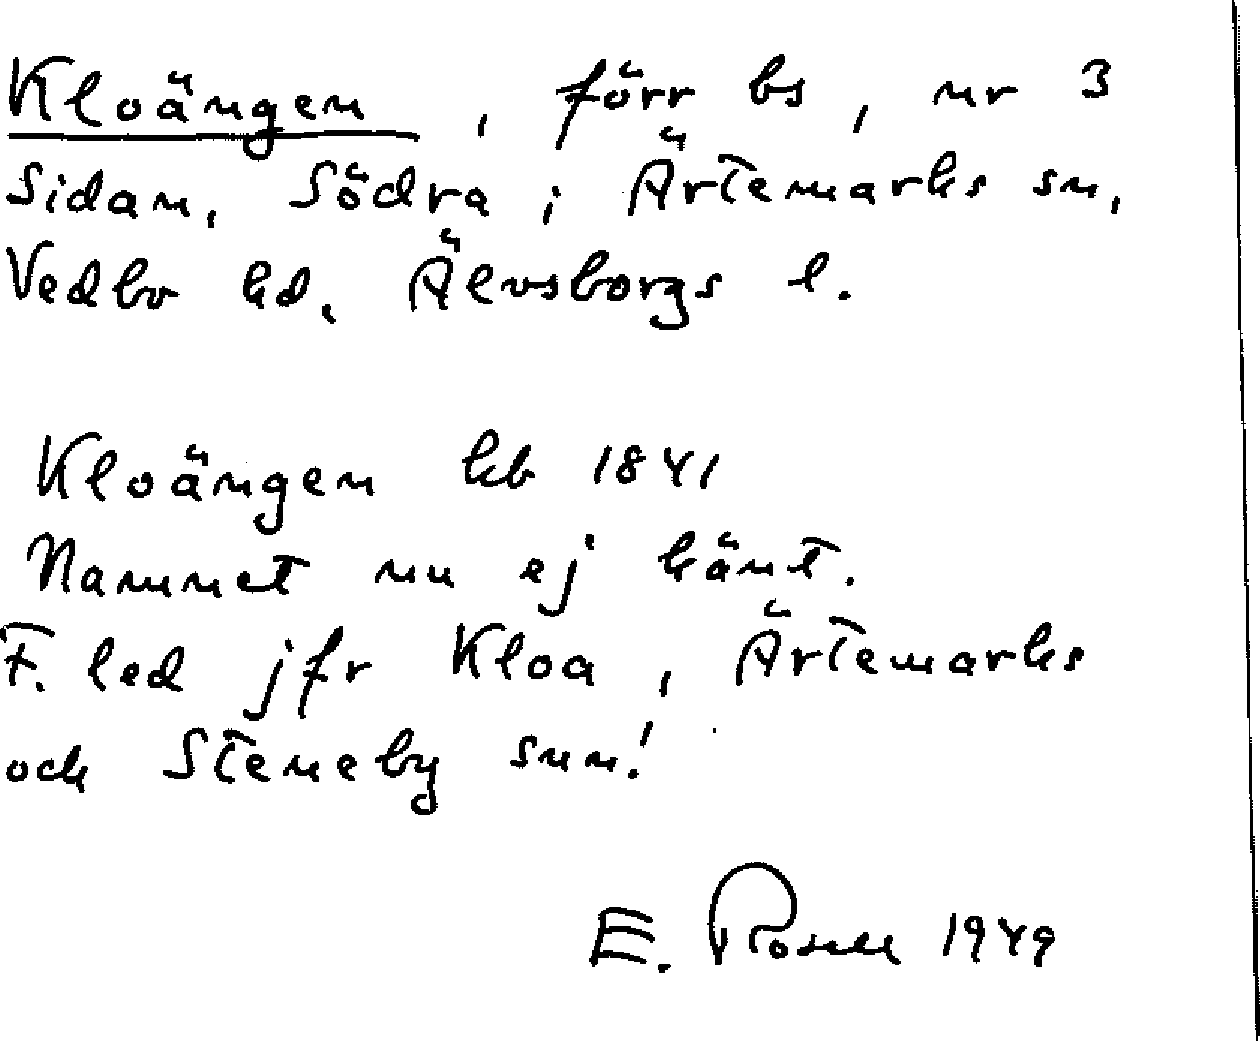 Kloängen, förr bs, nr 3
Sidan, Södra i Ärtemarks sn,
Vedbo hd, Älvsborgs l.
Kloängen hb 1841
Namnet nu ej känt.
F. led jfr Kloa, Ärtemarks
och Steneby snn!
E. Rosell 1949